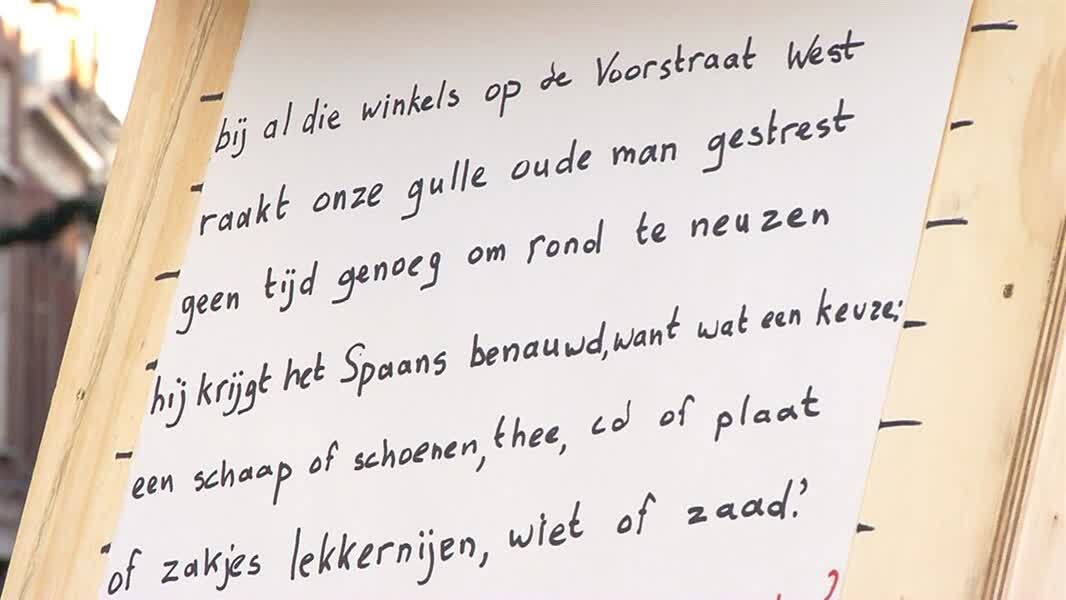 bij al die winkels op de Voorstraat West
raakt onze gulle oude man gestrest
geen tijd genoeg om rond te neuzen
hij krijgt het Spaans benauwd, want wat een keuze:
een schaap of schoenen, thee, cd of plaat
of zakjes lekkernijen, wiet of zaad.'